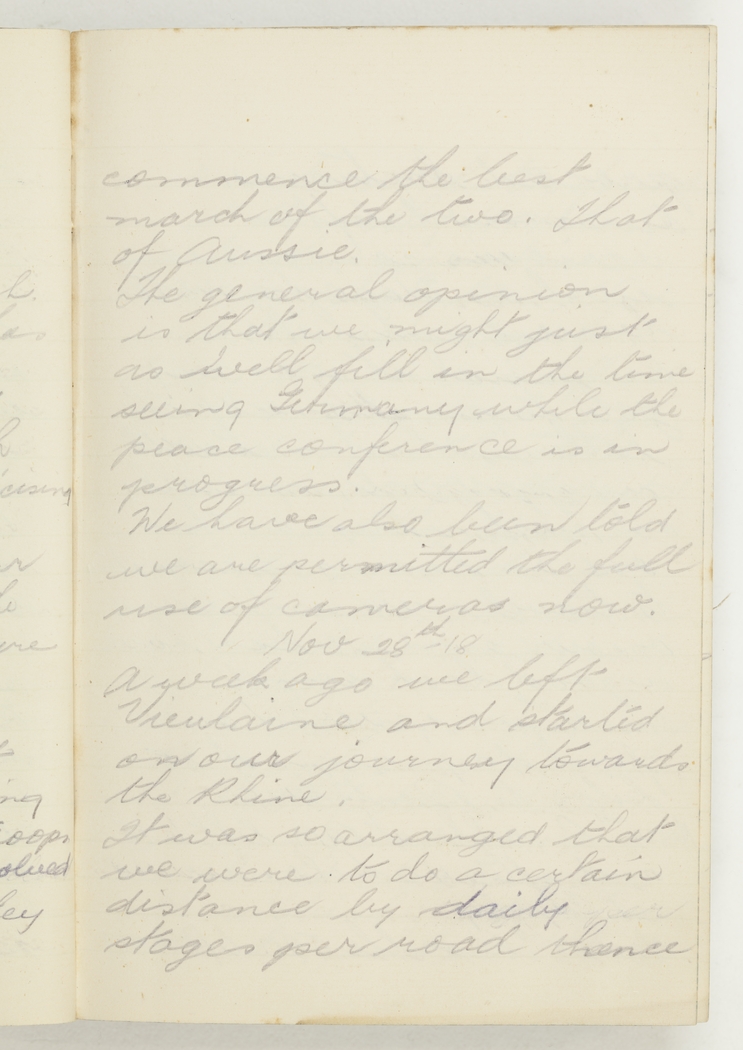 commence the best
march of the two. That
of Aussie.
The general opinion
is that we might just
as well fill in the time
seeing Germany while the
peace conference is in
progress.
We have also been told
we are permitted the full
use of cameras now.
Nov 28th-18
A week ago we left
Vieulaine and started
on our journey towards
the Rhine.
It was so arranged that
we were to do a certain
distance by daily
stages per road thence